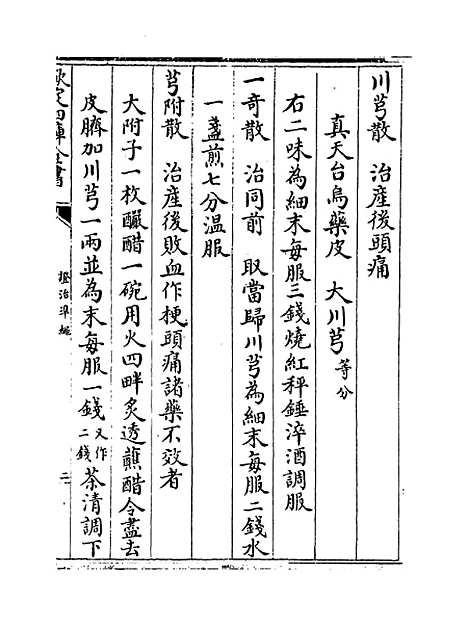 川芎散　治産後頭痛
真天台烏藥皮　大川芎等分
右二味為細末每服三錢燒紅秤錘淬酒調服
一奇散　治同前　取當歸川芎為細末每服二錢水
一盞煎七分温服
芎附散　治産後敗血作梗頭痛諸藥不效者
大附子一枚釅醋一碗用火四畔炙透蘸醋令盡去
皮臍加川芎一兩並為末每服一錢又作二錢茶清調下
欽定四庫全書
證治準繩